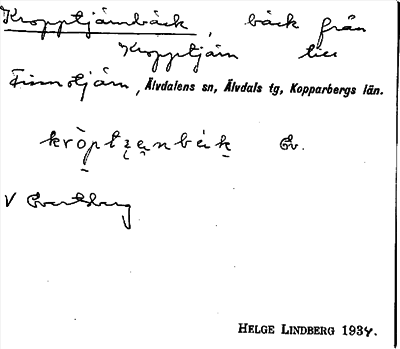 Kropptjärnbäck, bäck från
Kropptjärn till
Finnotjärn, Älvdalens sn, Älvdals tg, Kopparbergs län.
Ev.
V Evertsberg
HELGE LINDBERG 1934.